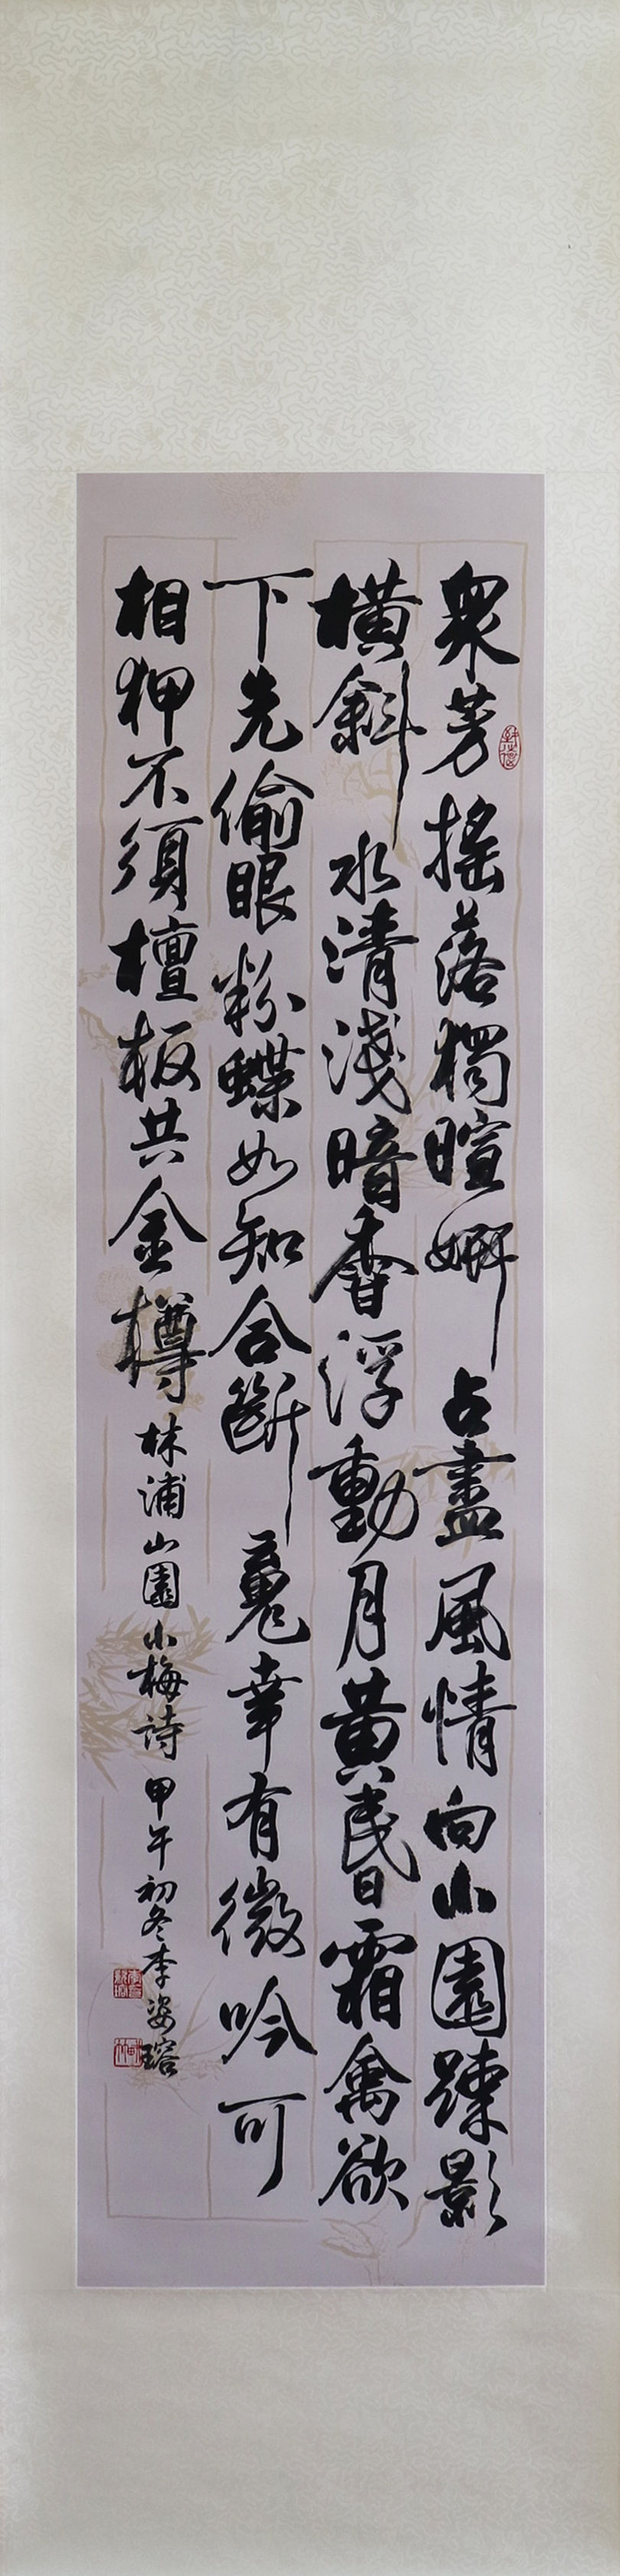 眾芳搖落獨暄妍占盡風情向小園踈影
橫斜水清淺暗香浮動月黃昬霜禽欲
下先偷眼粉蝶如知合斷䰟幸有微吟可
相狎不須檀板共金樽林浦山園小梅詩甲午初冬李姿瑢